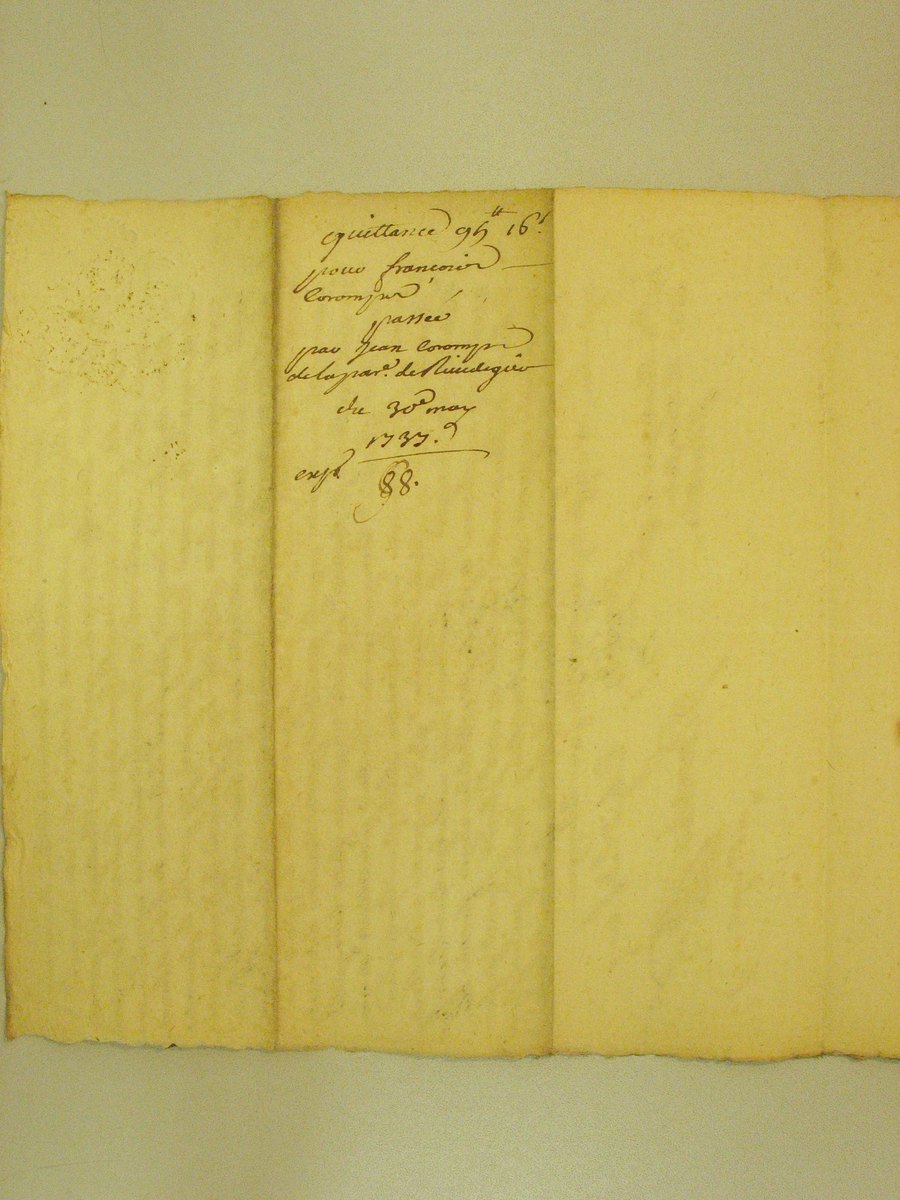 quittance 95ᵗᵗ 16ˢ
pour françois
Corompt
passée
par Jean Corompt
de la par.ᵉ de Rivedegier
du 30ᵉ may
1737.
exp.
88.